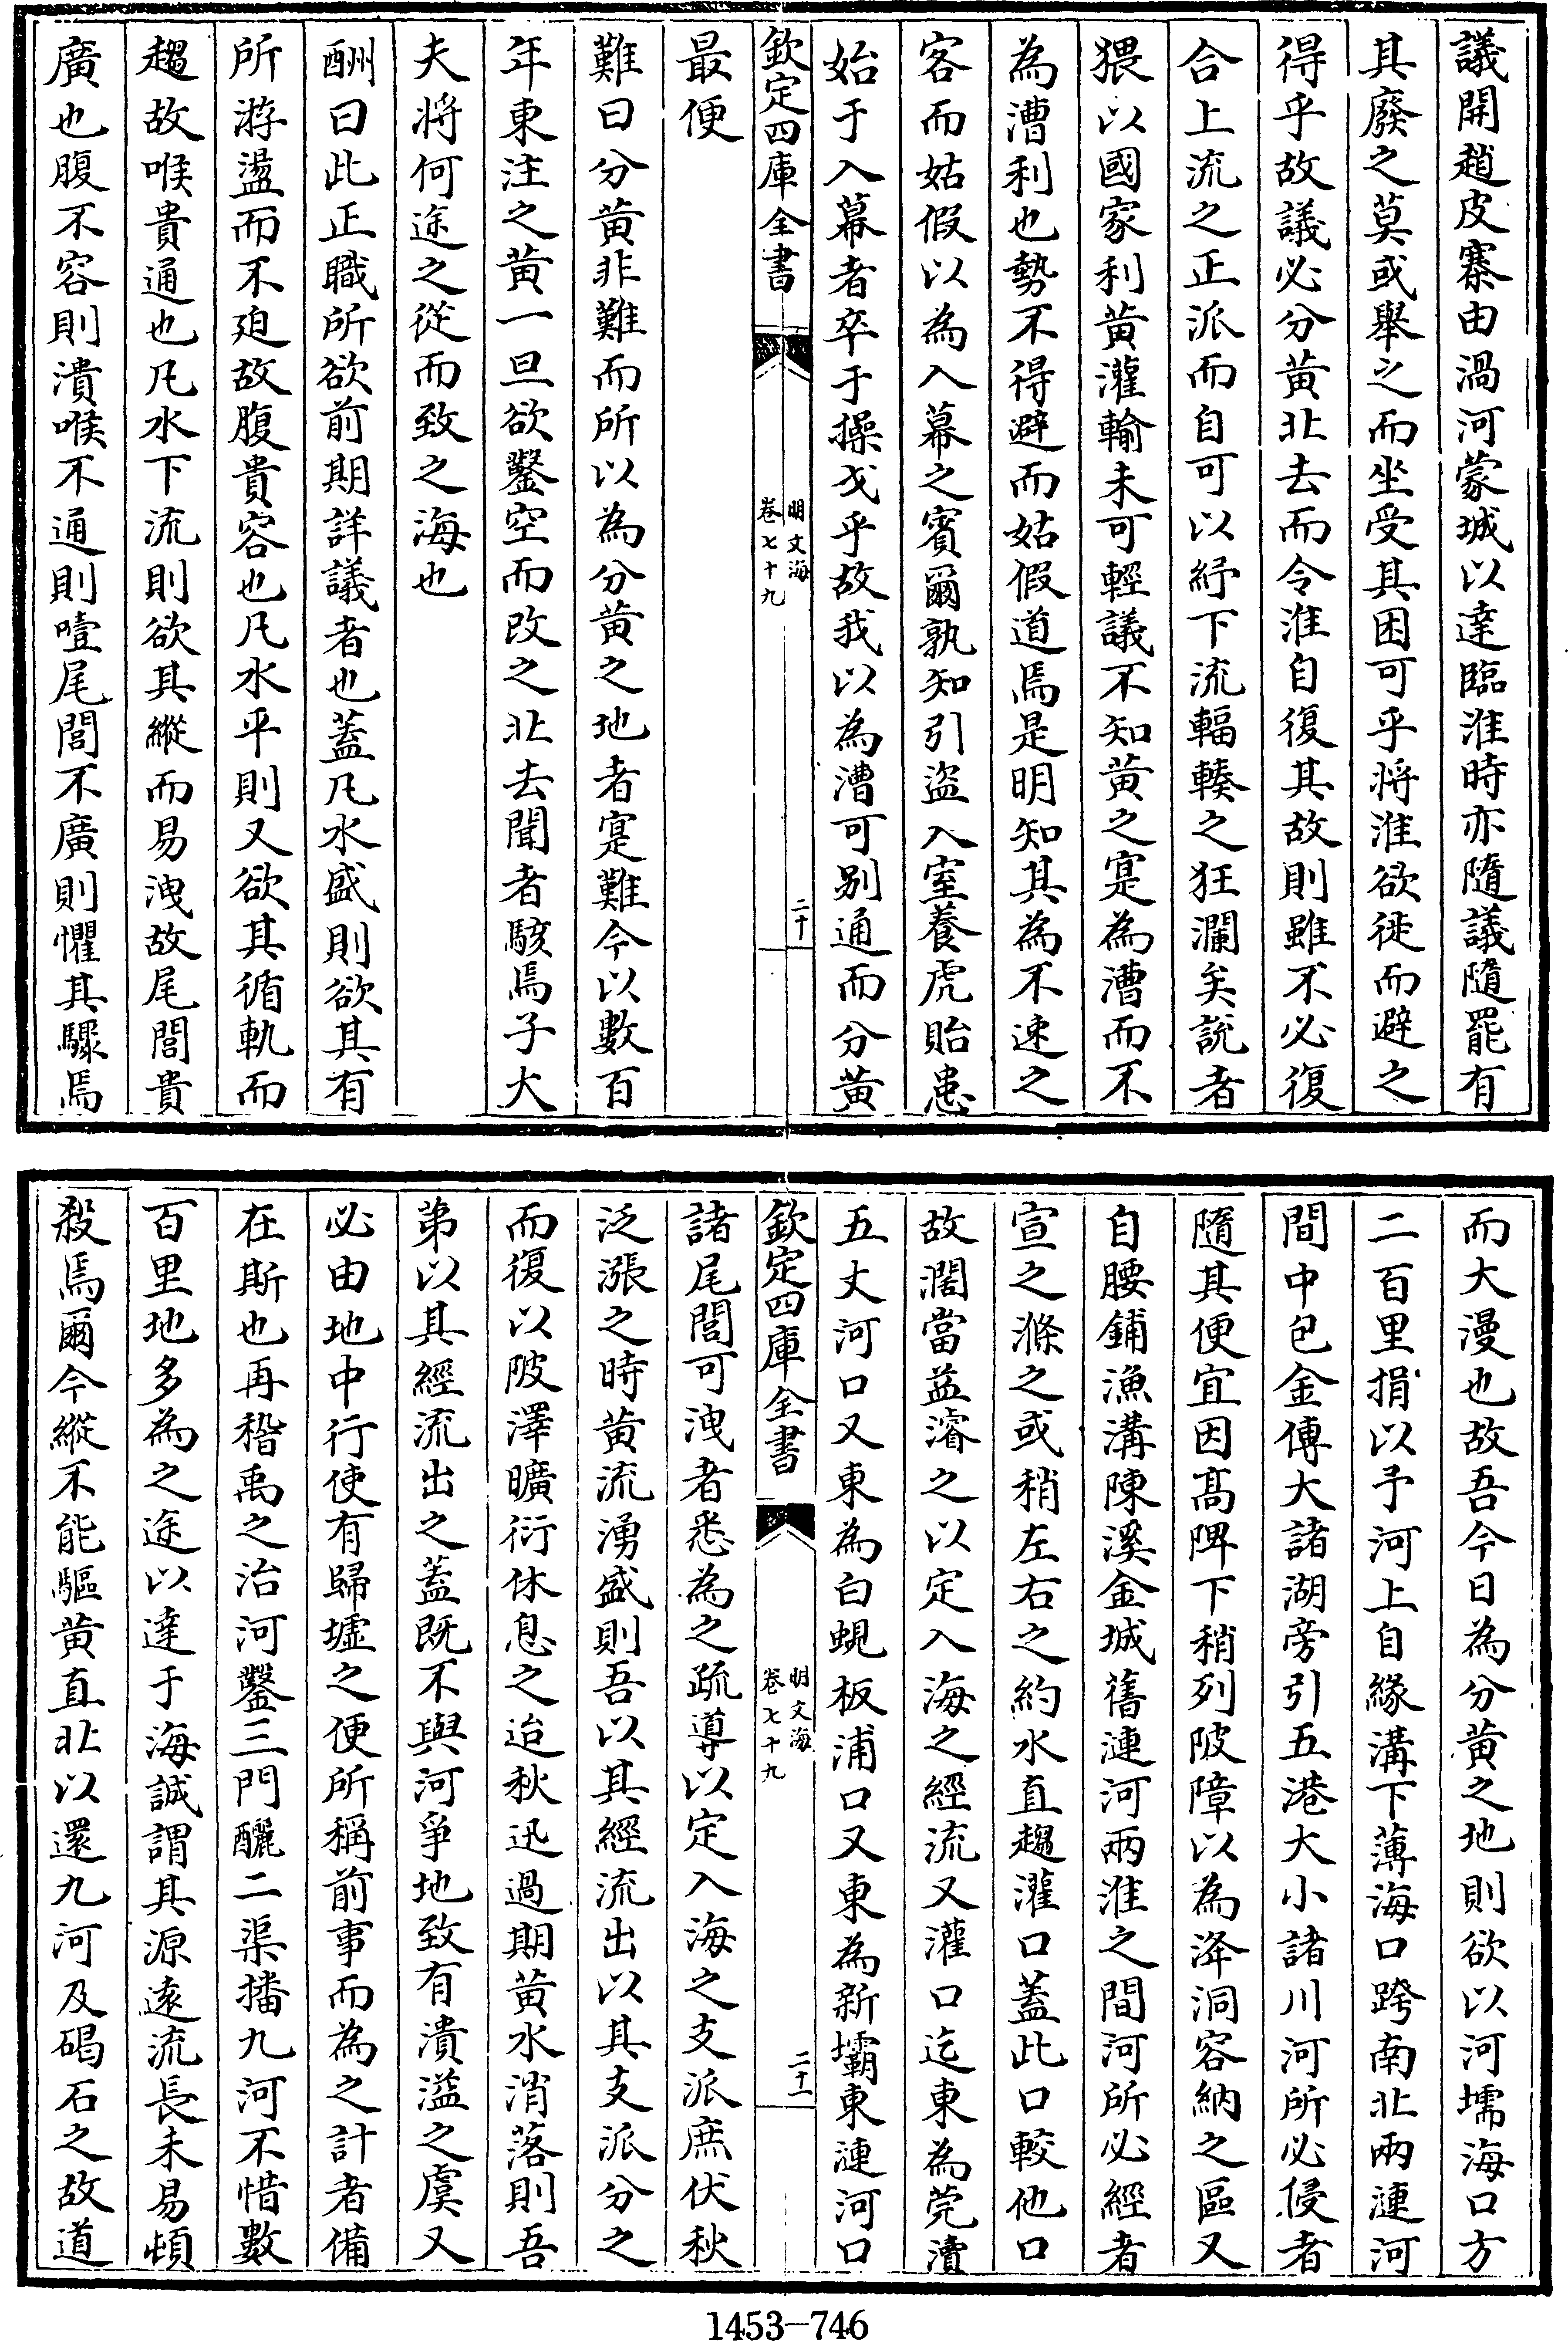 議開趙皮寨由渦河蒙城以達臨淮時亦隨議隨罷有
其廢之莫或舉之而坐受其困可乎將淮欲徙而避之
得乎故議必分黃北去而令淮自復其故則雖不必復
合上流之正派而自可以紓下流輻輳之狂瀾矣說者
猥以國家利黃灌輸未可輕議不知黃之寔為漕而不
為漕利也勢不得避而姑假道焉是明知其為不速之
客而姑假以為入幕之賓爾孰知引盜入室養虎貽患
始于入幕者卒于操戈乎故我以為漕可别通而分黃
欽定四庫全書
明文海
卷七十九
二十
最便
難曰分黃非難而所以為分黃之地者寔難今以數百
年東注之黃一旦欲鑿空而改之北去聞者駭焉子大
夫將何途之從而致之海也
酬曰此正職所欲前期詳議者也蓋凡水盛則欲其有
所游盪而不廹故腹貴容也凡水平則又欲其循軌而
趨故喉貴通也凡水下流則欲其縱而易洩故尾閭貴
廣也腹不容則潰喉不通則噎尾閭不廣則懼其驟焉
而大漫也故吾今日為分黃之地則欲以河壖海口方
二百里捐以予河上自緣溝下薄海口跨南北兩漣河
間中包金傅大諸湖旁引五港大小諸川河所必侵者
隨其便宜因髙陴下稍列陂障以為洚洞容納之區又
自腰鋪漁溝陳溪金城舊漣河兩淮之間河所必經者
宣之滌之或稍左右之約水直趨灌口蓋此口較他口
故濶當益濬之以定入海之經流又灌口迄東為莞瀆
五丈河口又東為白蜆板浦口又東為新壩東漣河口
欽定四庫全書
明文海
卷七十九
二十一
諸尾閭可洩者悉為之疏導以定入海之支派庶伏秋
泛漲之時黃流湧盛則吾以其經流出以其支派分之
而復以陂澤曠衍休息之迨秋迅過期黃水消落則吾
第以其經流出之蓋既不與河爭地致有潰溢之虞又
必由地中行使有歸墟之便所稱前事而為之計者備
在斯也再稽禹之治河鑿三門釃二渠播九河不惜數
百里地多為之途以達于海誠謂其源遠流長未易頓
殺焉爾今縱不能驅黃直北以還九河及碣石之故道
1453-746